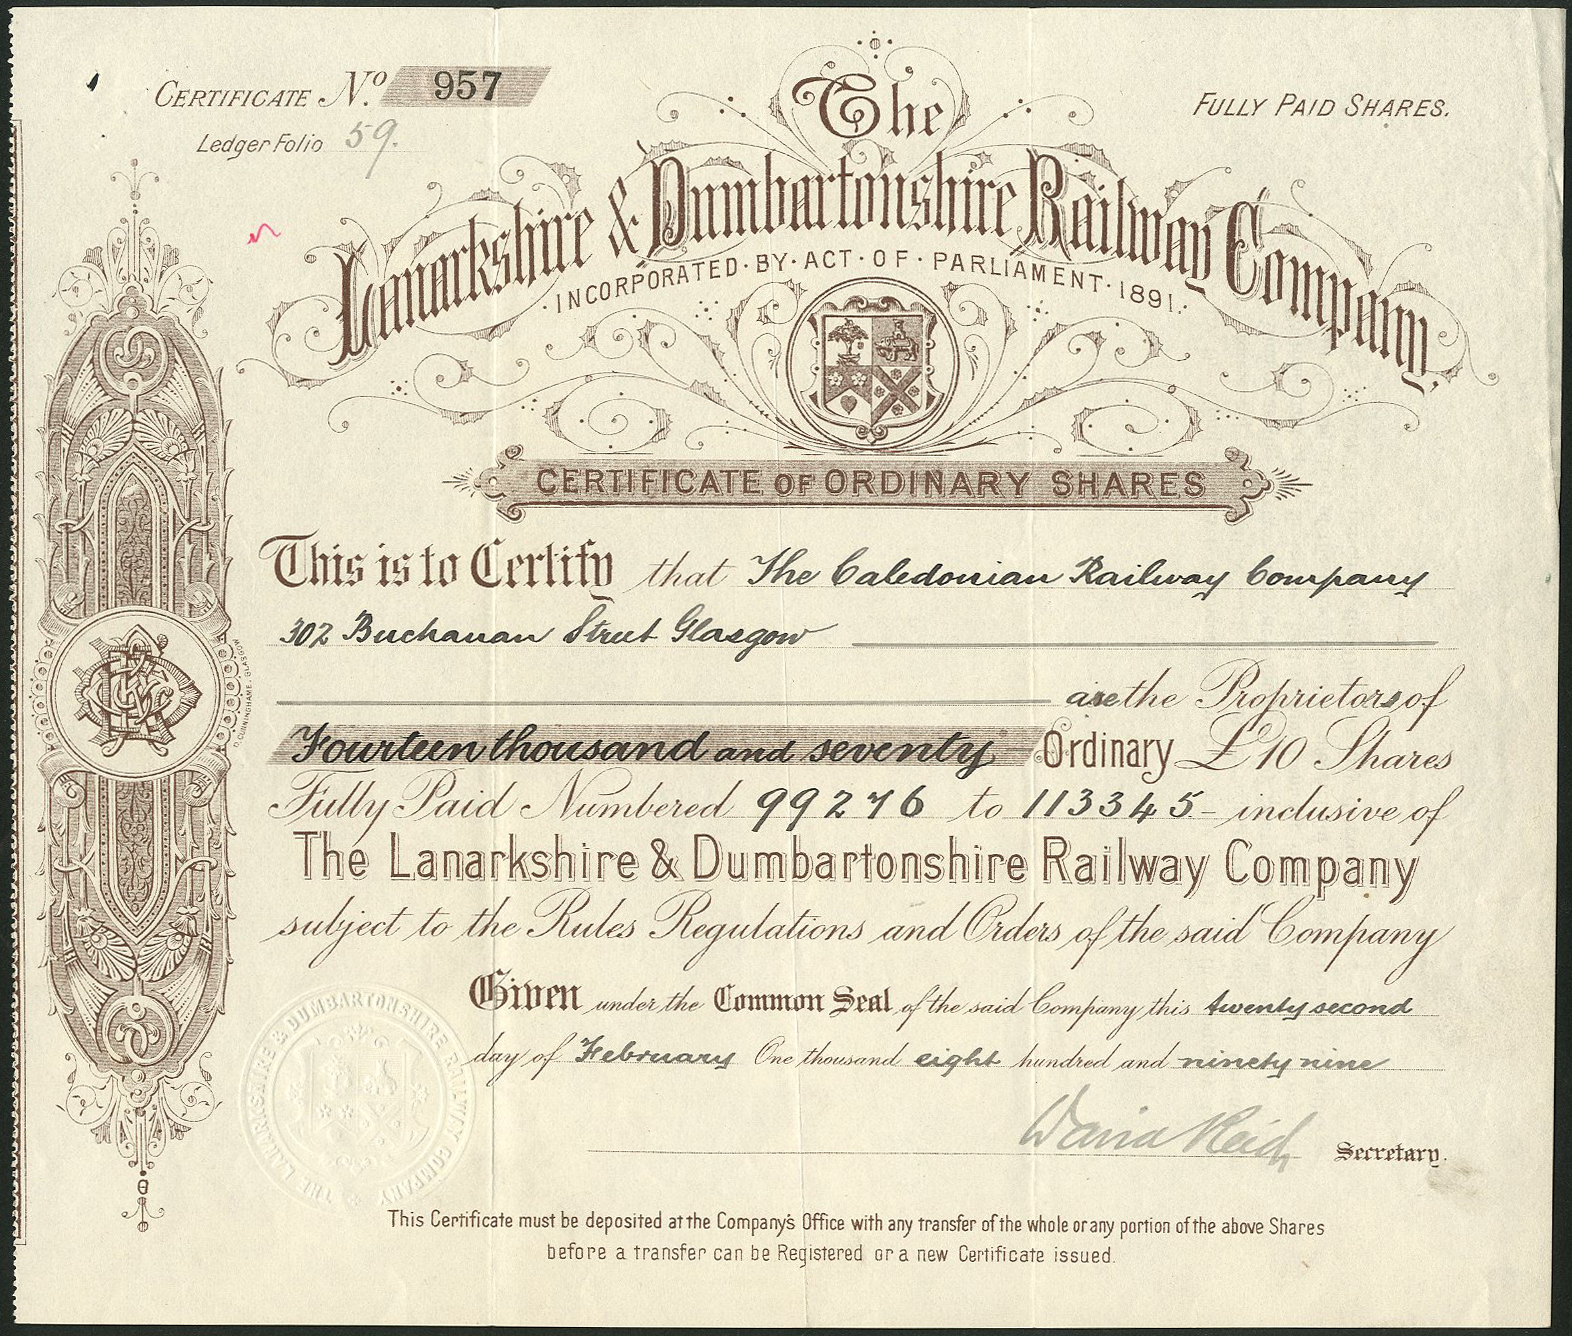 CERTIFICATE No. 957
Ledger Folio 59.
FULLY PAID SHARES.
The
Lanarkshire & Dumbartonshire Railway Company,
·INCORPORATED·BY·ACT·OF·PARLIAMENT·1891·
CERTIFICATE OF ORDINARY SHARES
This is to Certify that The Caledonian Railway Company
302 Buchanan Street Glasgow
are the Proprietors of
Fourteen thousand and seventy Ordinary £10 Shares
Fully Paid Numbered 99276 to 113345- inclusive of
The Lanarkshire & Dumbartonshire Railway Company
subject to the Rules Regulations and Orders of the said Company
Given under the Common Seal of the said Company this twenty second
day of February One thousand eight hundred and ninety nine
David Reid Secretary.
THE LANARKSHIRE & DUMBARTONSHIRE RAILWAY COMPANY
This Certificate must be deposited at the Company's Office with any transfer of the whole or any portion of the above Shares
before a transfer can be Registered or a new Certificate issued.
D. CUNNINGHAME, GLASGOW